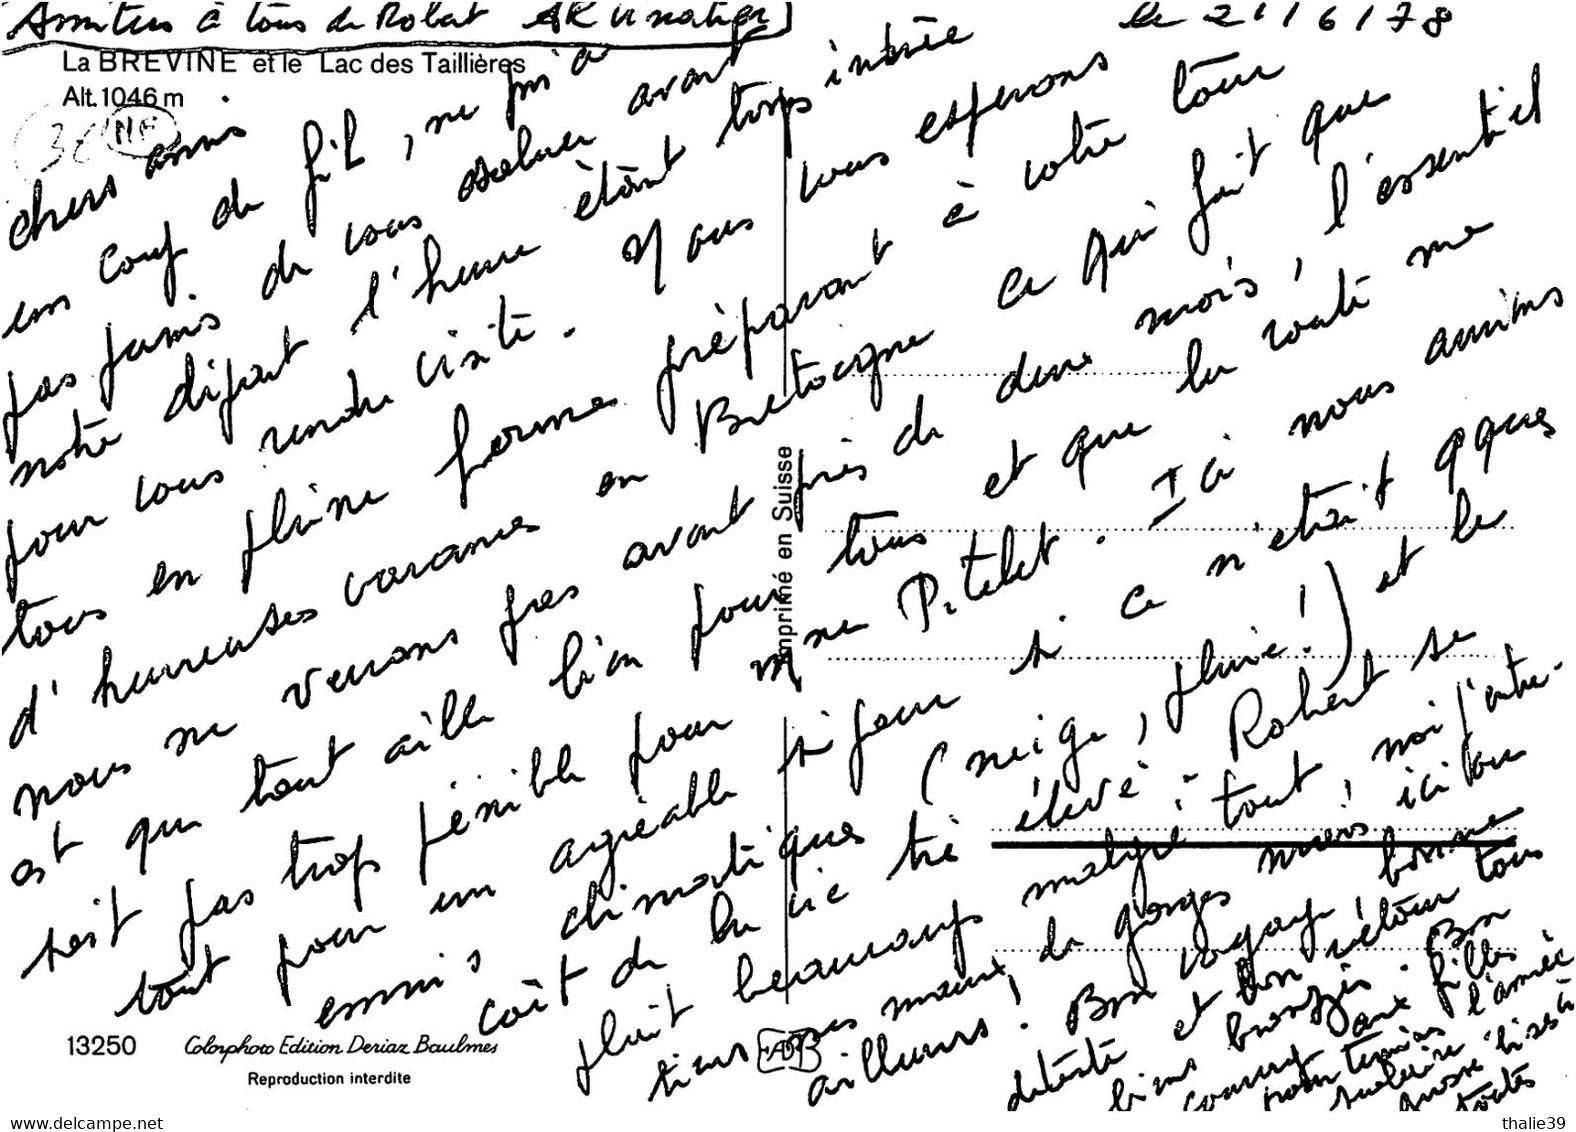 Amities à tous de Robert
le 21/6/78
La BREVINE et le Lac des Taillières
Alt. 1046 m
chers amis
un coup de fil, ne m'a
pas permis de vous saluer avant
notre départ l'heure étant trop indrée
pour vous rendre visite. Nous vous esperons
tous en pleine forme préparant à votre tour
d'heureuses vacances en Bretagne ce qui fait que
nous ne verrons pas avant près de deux mois, l'essentiel
est que tout aille bien pour tous et que la route ne
soit pas trop pénible pour Mme Pitelet. Ici nous aurions
tout pour un agréable séjour si ce n'était qques
ennuis climatiques (neige, pluie!) et le
coût de la vie très élevé. Robert se
plait beaucoup malgré tout, moi j'entre-
tiens mes maux de gorges mieux ici qu'
ailleurs! Bon voyage, bonne
détente et bon retour tous
biens bronzés. Bon
courage aux filles
pour terminer l'année
scolaire bises à
toutes
Imprimé en Suisse
13250
Colorphoto Edition Deriaz Baulmes
Reproduction interdite
www.delcampe.net
thalie39